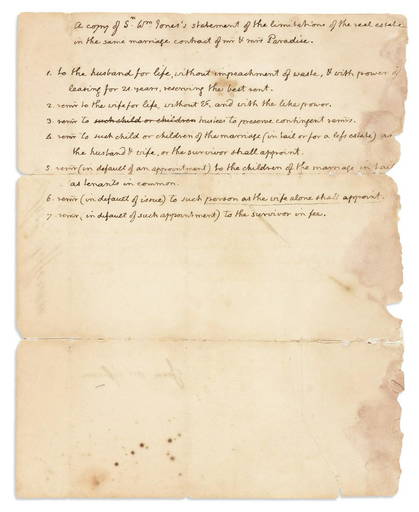 A copy of Sr. Wm Jones's statement of the limitations of the real estate
in the same marriage contract of mr & mrs Paradise.
1. to the husband for life, without impeachment of waste, & with power of
leasing for 21 years, reserving the best rent.
2. remr to the wife for life, without &c, and with the like power.
3. remr to such child or children trustees to preserve contingent remrs.
4. remr to such child or children of the marriage (in tail or for a less estate) as
the husband & wife, or the survivor shall appoint.
5. remr (in default of an appointment) to the children of the marriage in tail
as tenants in common.
6. remr (in default of issue) to such person as the wife alone shall appoint.
7. remr (in default of such appointment) to the survivor in fee.